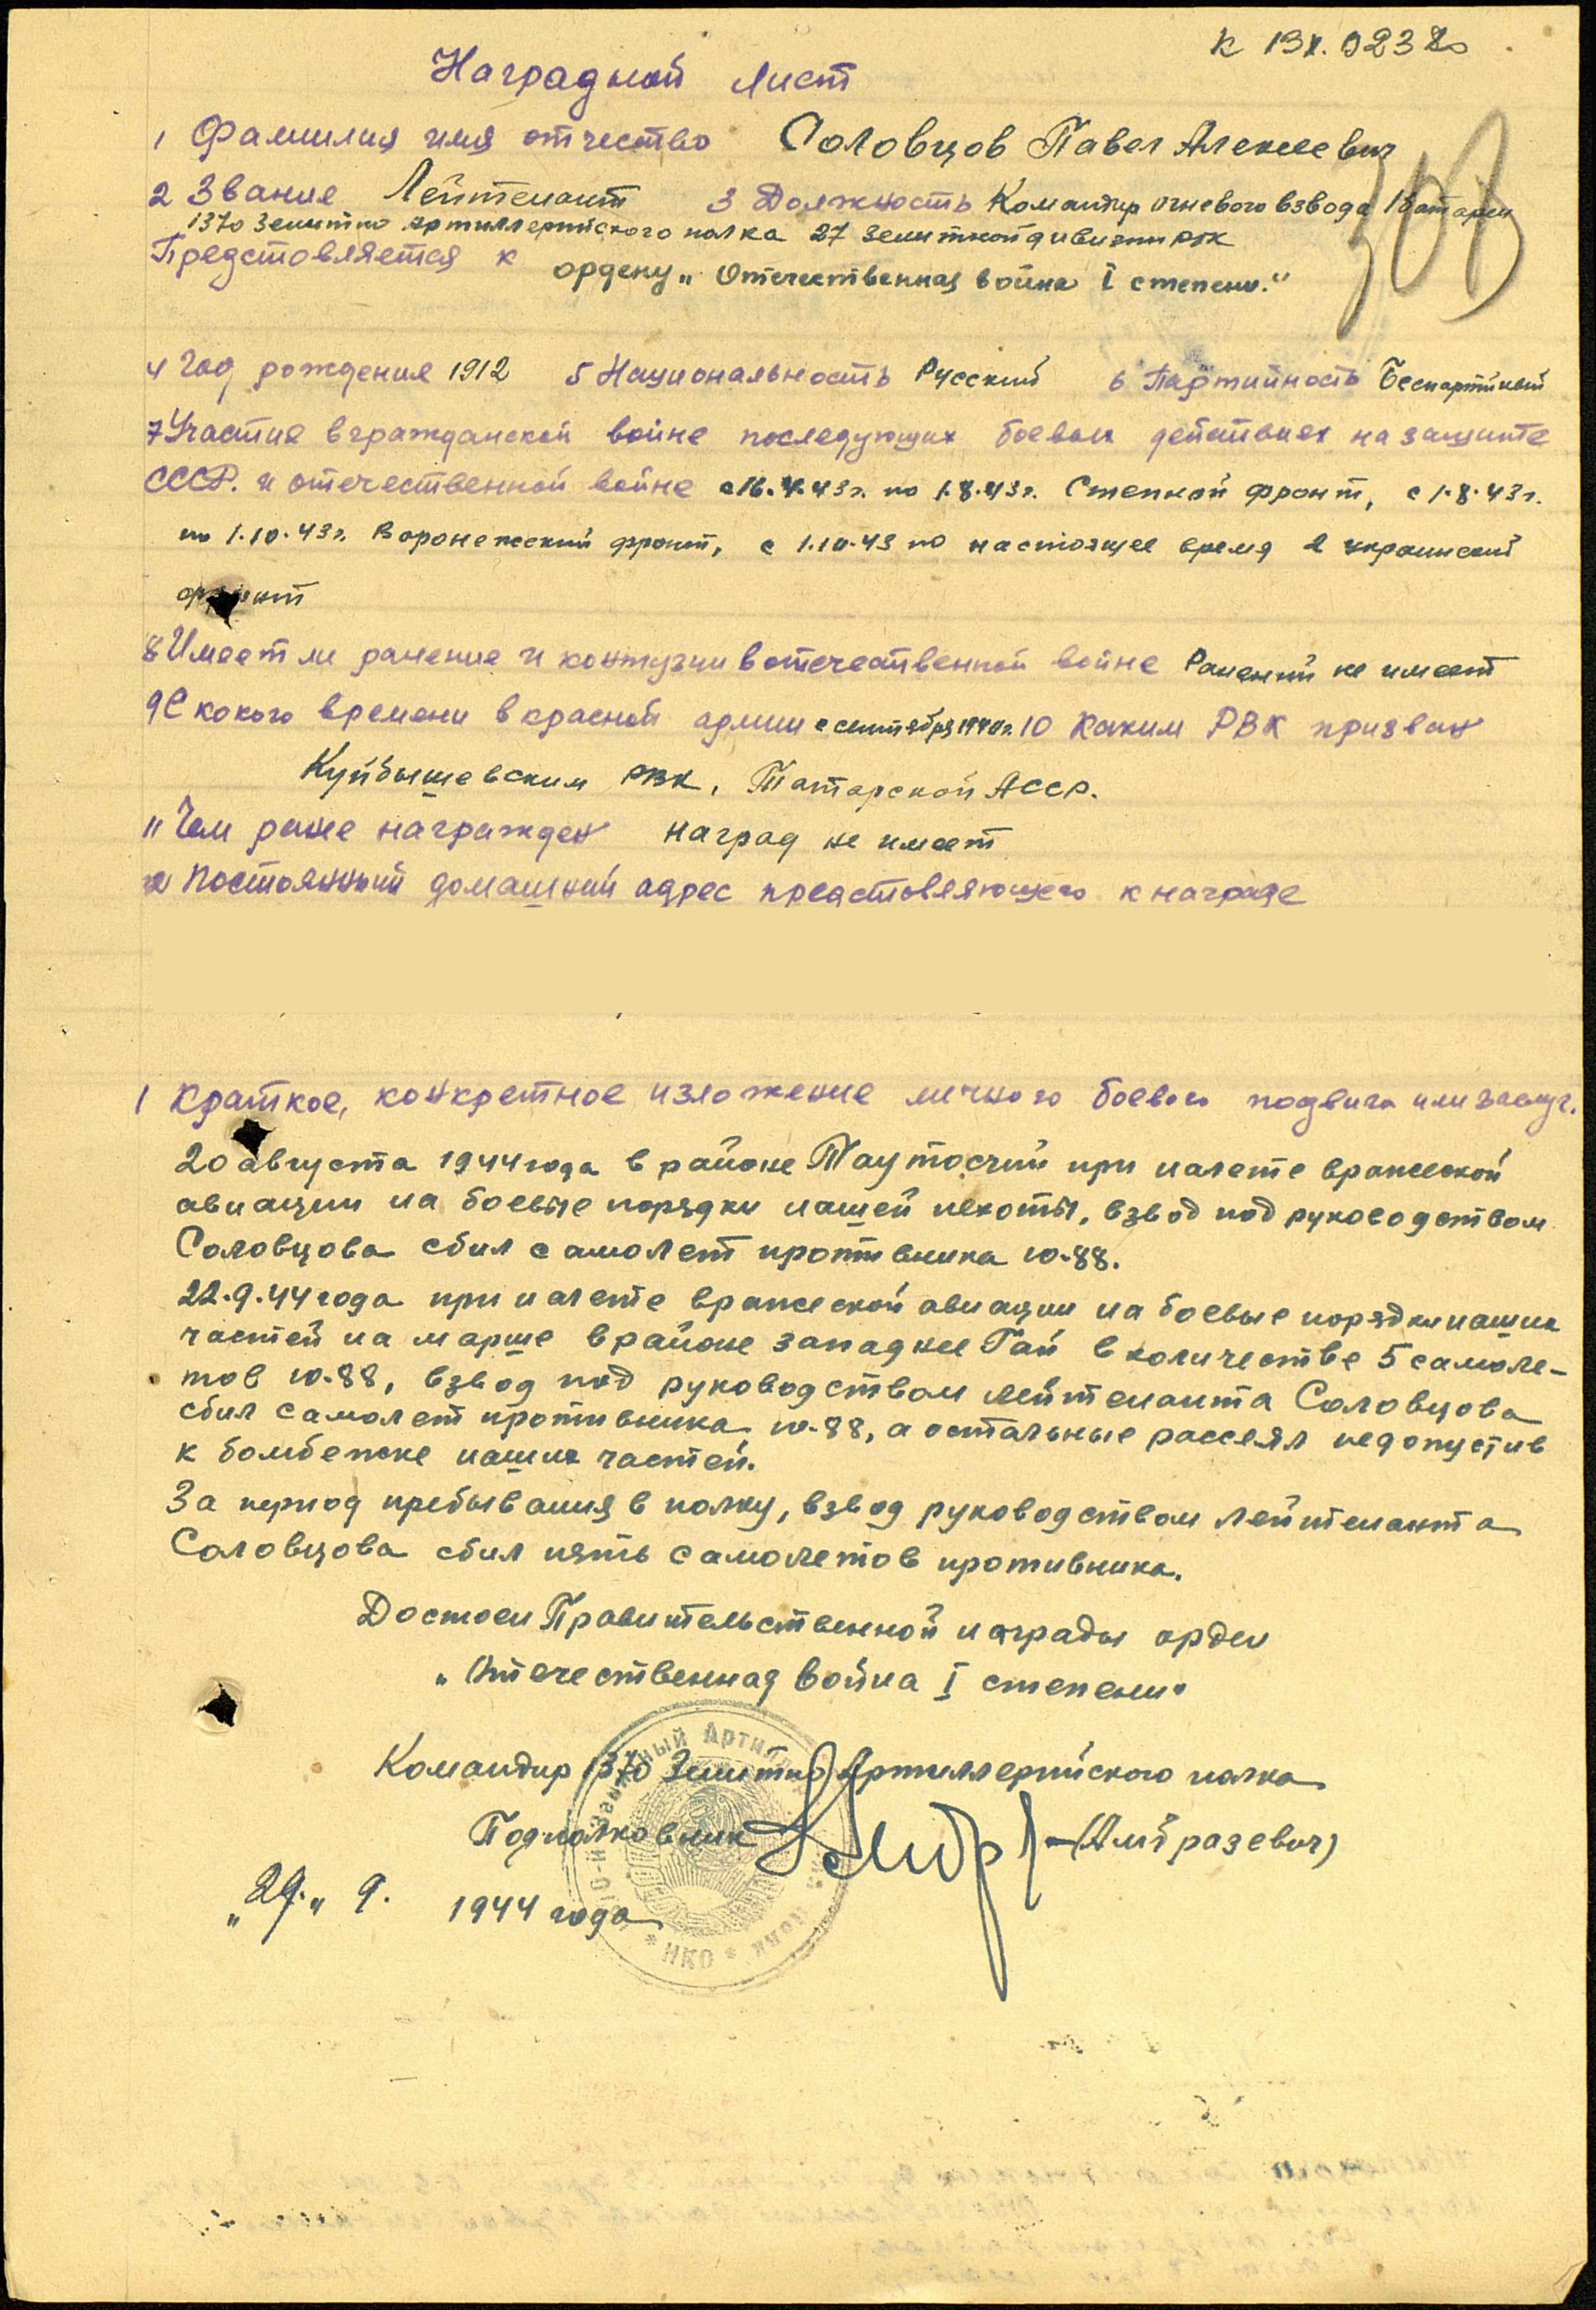 к 13х. 0238
Наградной лист
1 Фамилия имя отчество Соловцов Павел Алексеевич
2 Звание Лейтенант 3 Должность Командир огневого взвода 1 батареи
1370 Зенитно артиллерийского полка 27 зенитной дивизии РГК
Предстовляется к ордену „Отечественная война I степени."
4 Год рождения 1912 5 Национальность Русский 6 Партийность Беспартийный
7 Участие в гражданской войне последующих боевых действиях на защите
СССР. и отечественной войне с 16.4.43г. по 1.8.43г. Степной фронт, с 1.8.43г.
по 1.10.43г. Воронежский фронт, с 1.10.43 по настоящее время 2 украинский
фронт
8 Имеет ли ранение и контузии в отечественной войне Ранений не имеет
9 С кокого времени в красной армии с сентября 1940г. 10 Каким РВК призван
Куйбышевским РВК, Татарской АССР.
11 Чем ранее награжден наград не имеет
12 Постоянный домашний адрес предстовляющего к награде
1 Краткое, конкретное изложение личного боевого подвига или заслуг.
20 августа 1944 года в районе Таутосчий при налете вражеской
авиации на боевые порядки нашей пехоты, взвод под руководством
Соловцова сбил самолет противника Ю-88.
22.9.44 года при налете вражеской авиации на боевые порядки наших
частей на марше в районе западнее Гай в количестве 5 самоле-
тов Ю-88, взвод под руководством лейтенанта Соловцова
сбил самолет противника Ю-88, а остальные рассеял недопустив
к бомбежке наших частей.
За период пребывания в полку, взвод руководством лейтенанта
Соловцова сбил пять самолетов противника.
Достоен Правительственной награды орден
„Отечественная война I степени"
Командир 1370 Зенитно Артиллерийского полка
Подполковник (Амбразевич)
„29" 9. 1944 года
НКО